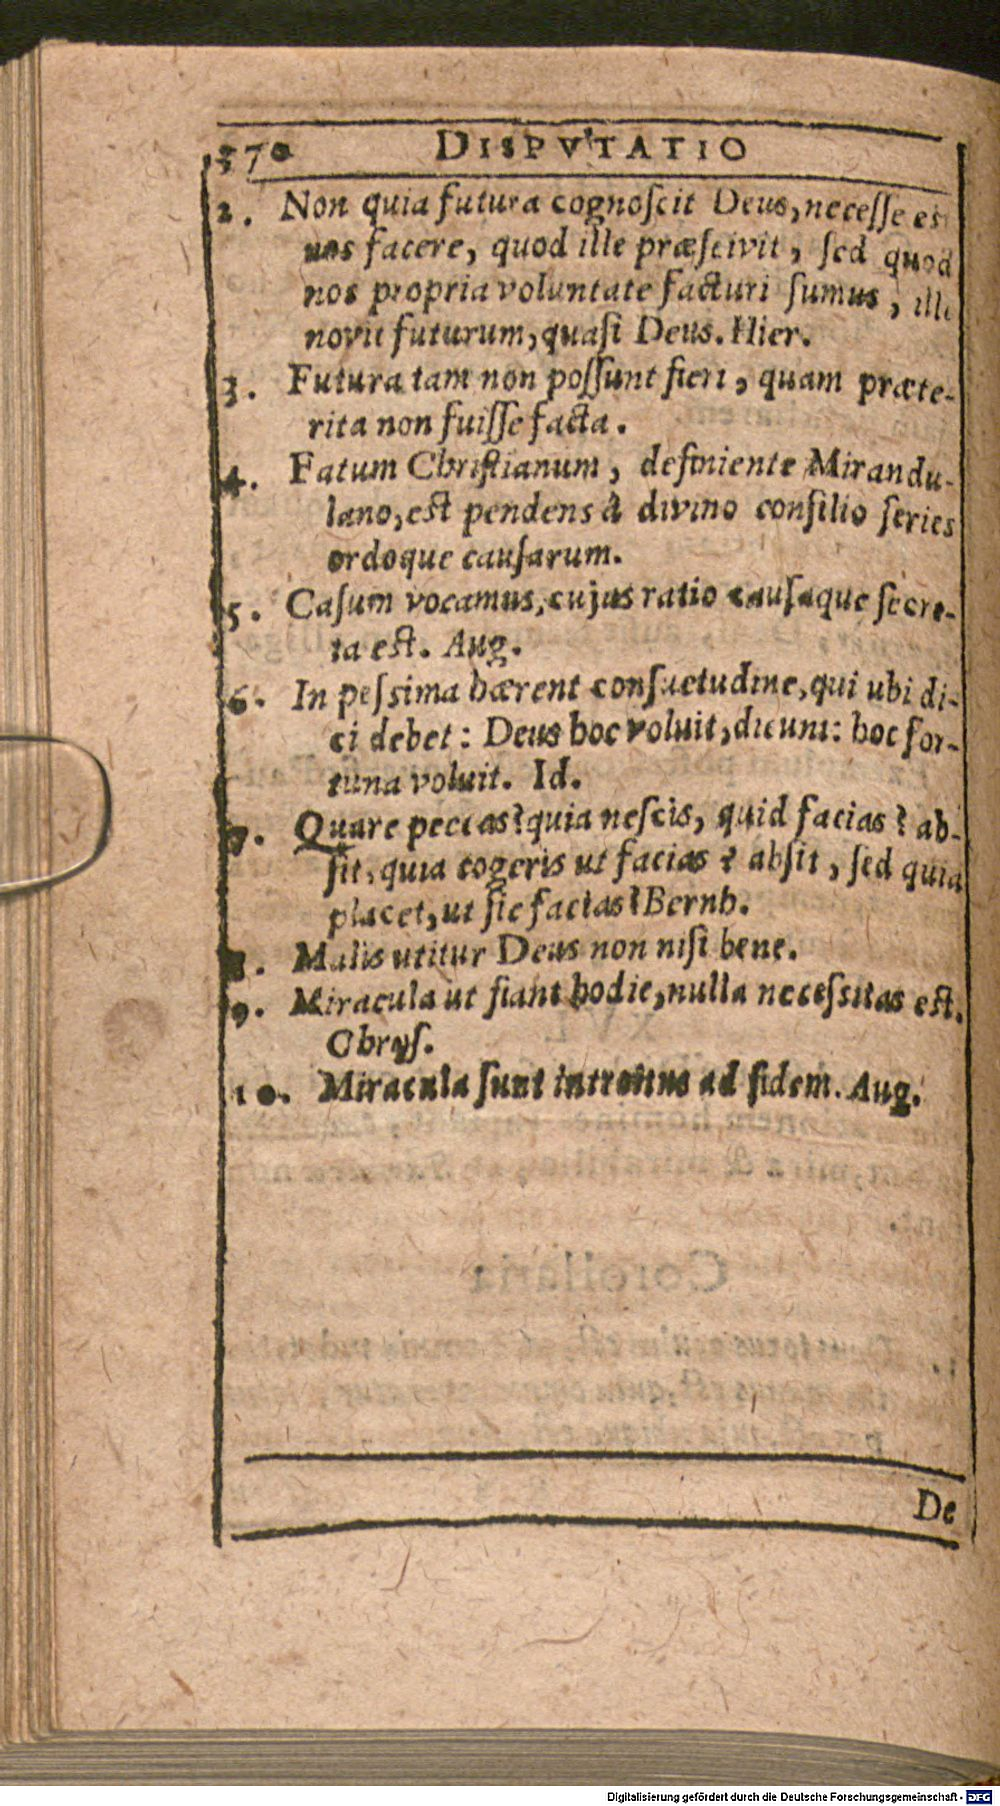 370 DISPVTATIO
2. Non quia futura cognoſcit Deus, neceſſe eſt
nos facere, quod ille præſcivit, ſed quod
nos propria voluntate facturi ſumus, ille
novit futurum, quaſi Deus. Hier.
3. Futura tam non poſſunt fieri, quam præte-
rita non fuiſſe facta.
4. Fatum Chriſtianum, definiente Mirandu-
lano, eſt pendens à divino conſilio ſeries
ordoque cauſarum.
5. Caſum vocamus, cujus ratio cauſaque ſecre-
ta eſt. Aug.
6. In peſsima hærent conſuetudine, qui ubi di-
ci debet: Deus hoc voluit, dicunt: hoc for-
tuna voluit. Id.
7. Quare peccas? quia neſcis, quid facias? ab-
ſit, quia cogeris ut facias? abſit, ſed quia
placet, ut ſic facias? Bernh.
8. Malis utitur Deus non niſi bene.
9. Miracula ut fiant hodie, nulla neceſsitas eſt.
Chryſ.
10. Miracula ſunt introitus ad fidem. Aug.
De
Digitalisierung gefördert durch die Deutsche Forschungsgemeinschaft - DFG